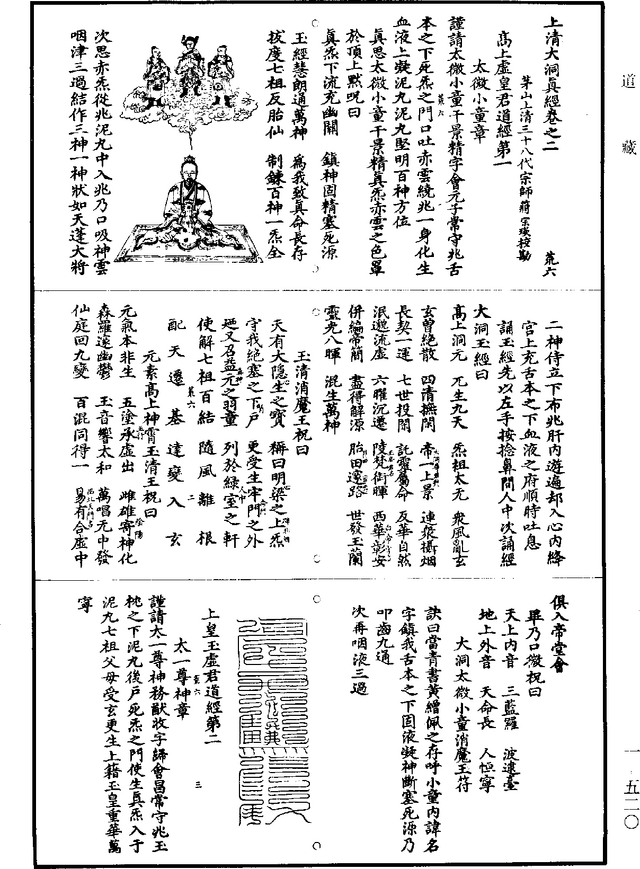 道藏
上清大洞真經卷之二
茅山上清三十八代宗師蔣宗瑛校勘
荒六
高上虛皇君道經第一
太微小童章
謹請太微小童干景精字會元子常守兆舌
本之下死炁之門口吐赤雲繞兆一身化生
血液上凝泥丸泥丸堅明百神方位
真思太微小童干景精真炁赤雲之色罩
於頂上默呪曰
真炁下流充幽關 鎮神固精塞死源
玉經慧朗通萬神 為我致真命長存
拔度七祖反胎仙 制鍊百神一炁全
次思赤炁從兆泥丸中入兆乃口吸神雲
咽津三過結作三神一神狀如天蓬大將
二神侍立下布兆肝內遊遍却入心內絳
宮上充舌本之下血液之府順時吐息
誦玉經先以左手按捻鼻間人中次誦經
大洞玉經曰
高上洞元 元生九天 炁祖太无 眾風亂玄
玄曾絕散 四清撫閑 帝一上景 連衆攝烟
長契一運 七世投閑 託靈屬命 反華自然
泯邈流虛 六曜沉遷 陵梵街暉 西華彰安
併編帝簡 盡得解源 胎田邃路 世發玉蘭
靈光八暉 混生萬神
玉清消魔王祝曰
天有大隱生之寶 稱曰明梁之上炁
守我絕塞之下戶 更受生牢門之外
乃又召益元之羽童 列於綠室之軒
使解七祖百結 隨風離根
配天遷基 達變入玄
荒六
二
元素高上神霄玉清王祝曰
元氣本非生 五塗承虛出 雌雄寄神化
森羅邃幽鬱 玉音響太和 萬唱元中發
仙庭回九變 百混同得一 易有合虛中
俱入帝堂會
畢乃口微祝曰
天上內音 三藍羅 波逮臺
地上外音 天命長 人恒寧
大洞太微小童消魔王符
訣曰當青書黃繒佩之存呼小童內諱名
字鎮我舌本之下固液凝神斷塞死源乃
叩齒九通
次再咽液三過
上皇玉虛君道經第二
荒六
三
太一尊神章
謹請太一尊神務猷收字歸會昌常守兆玉
枕之下泥丸後戶死炁之門使生真炁入于
泥丸七祖父母受玄更生上籍玉皇重華萬
寧
一·五二〇